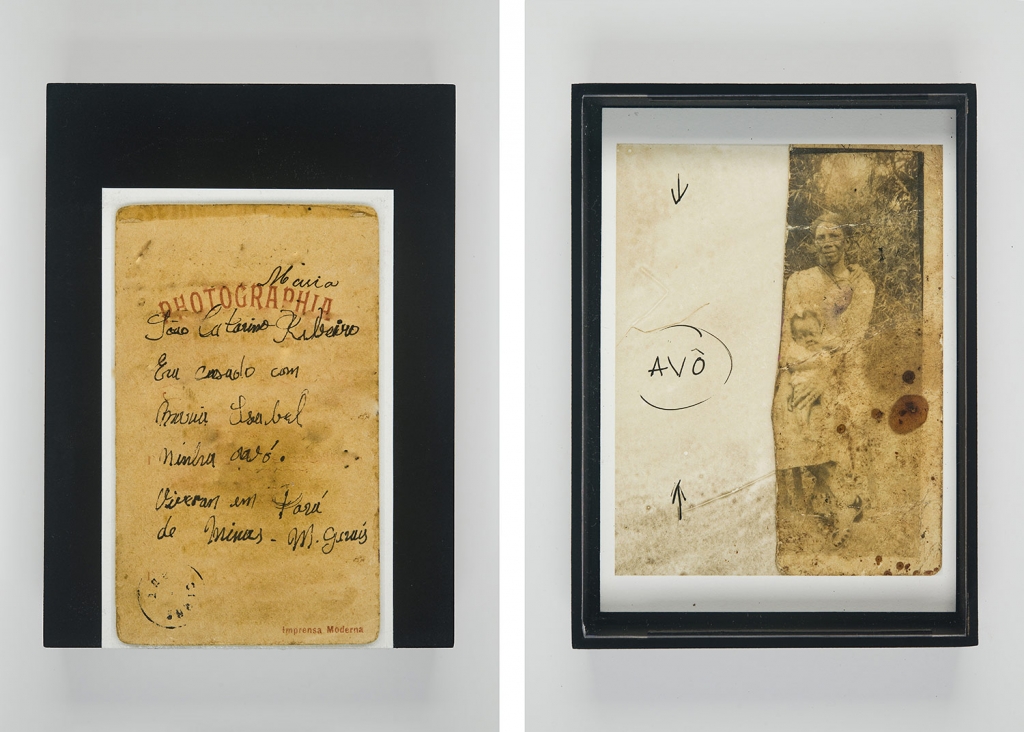 Maria
PHOTOGRAPHIA
João Catarino Ribeiro
Era casado com
Maria Isabel
minha avó.
Viveram em Pará
de Minas - M. Gerais
Imprensa Moderna
AVÔ